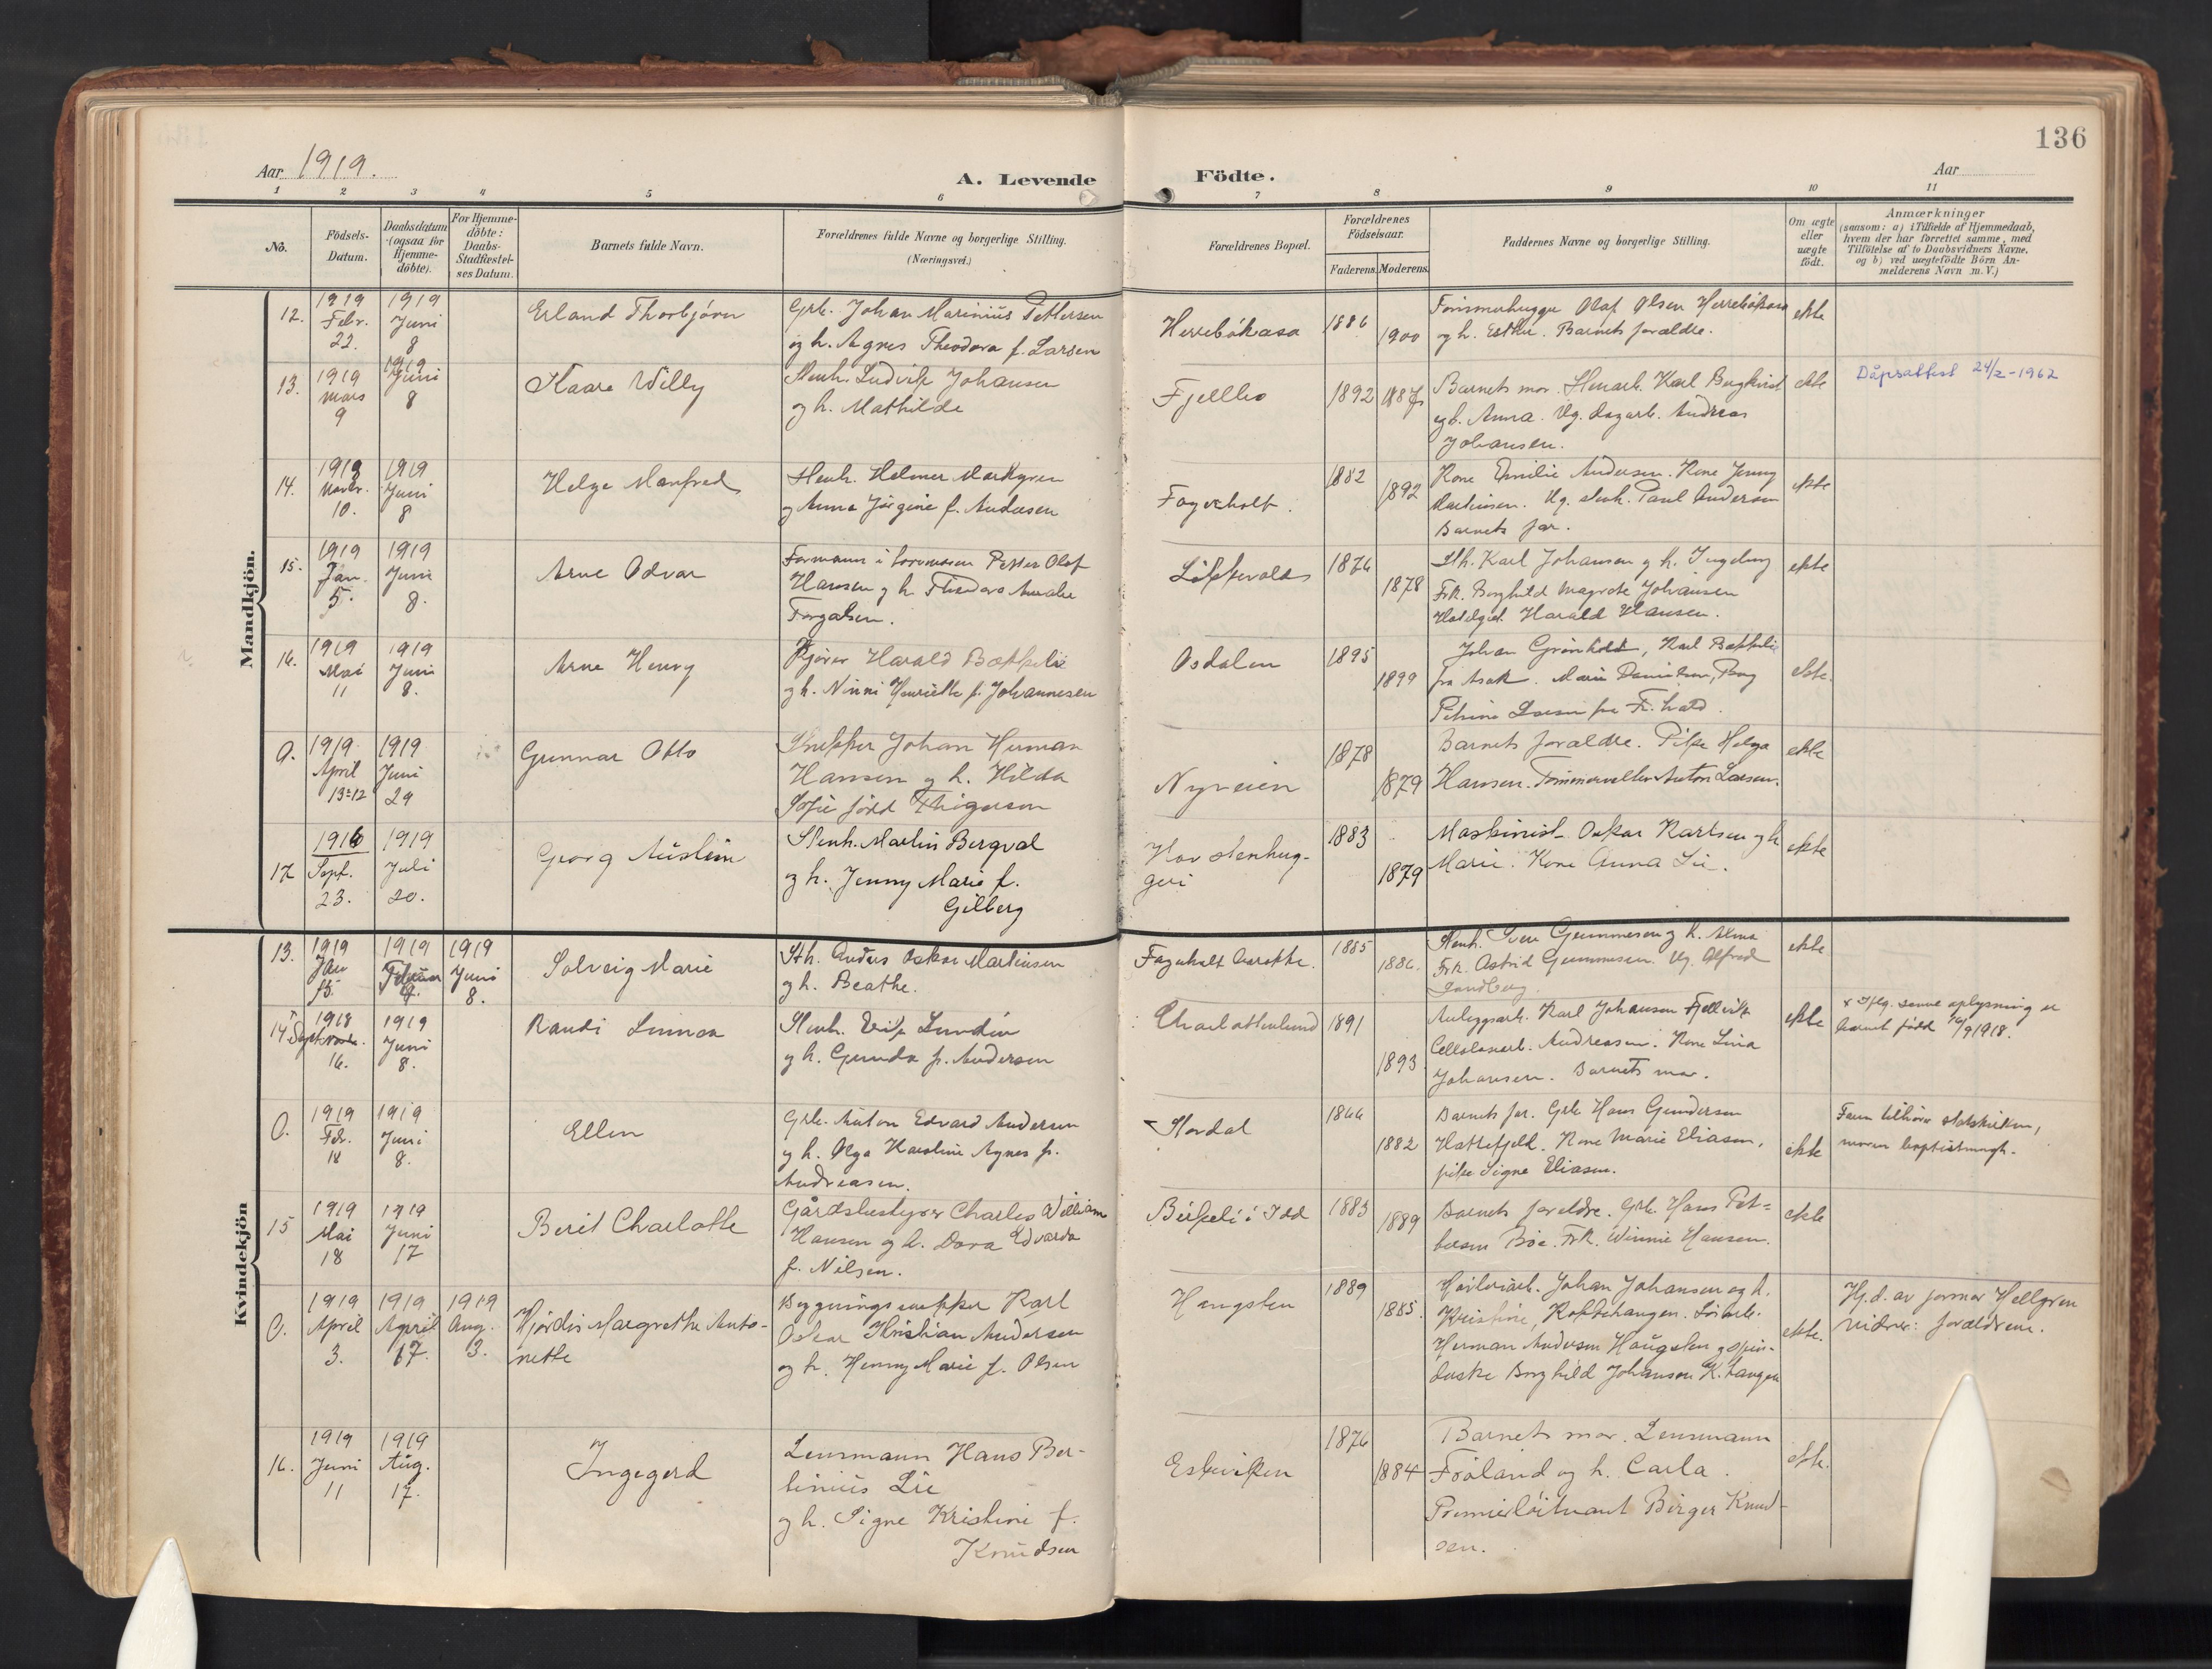 136
Aar 1919.
A. Levende Födte.
Aar
1 2 3 4 5 6 7 8 9 10 11
No.
Födsels-
Datum.
Daabsdatum
(ogsaa for
Hjemme-
döbte).
For Hjemme-
döbte:
Daabs-
Stadfæstel-
ses Datum.
Barnets fulde Navn.
Forældrenes fulde Navne og borgerlige Stilling.
(Næringsvei.)
Forældrenes Bopæl.
Forældrenes
Födselsaar.
Faderens. Moderens.
Faddernes Navne og borgerlige Stilling.
Om ægte
eller
uægte
födt.
Anmærkninger
(saasom: a) i Tilfælde af Hjemmedaab,
hvem der har forrettet samme, med
Tilföielse af to Daabsvidners Navne.
og b) ved uægtefödte Börn An-
melderens Navn m. V.)
Mandkjön.
12.
1919
Febr.
22.
1919
Juni
8
Erland Thorbjörn
Grb. Johan Marinius Pettersen
og h. Agnes Theodora f. Larsen
Herrebökasa
1886
1900
Tömmerhugger Olaf Olsen Herrebökasa
og h. Esther. Barnets forældre.
ekte
13.
1919
Mars
9
1919
Juni
8
Kaare Willy
Stenh. Ludvik Johansen
og h. Mathilde
Fjellbo
1892
1887
Barnets mor. Stenarb. Karl Bergkvist
og h. Anna. Ug. dagarb. Andreas
Johansen.
ekte
Dåpsattest 24/2-1962
14.
1918
Novbr.
10.
1919
Juni
8
Helge Manfred
Stenh. Helmer Markgren
og Anna Jörgine f. Andersen
Fagerholt.
1882
1892
Kone Emilie Andersen. Kone Jenny
Martinsen. Ug. stenh. Paul Andersen
Barnets far.
ekte
15.
1919
Jan.
5.
1919
Juni
8.
Arne Odvar
Formann i Petter Olaf
Hansen og h. Theodora Amalie
Torgalsen.
Lökkevolds
1876
1878
Sth. Karl Johansen og h. Ingeborg
Frk. Borghild Magrete Johansen
Harald Hansen.
ekte
16.
1919
Mai
11
1919
Juni
8.
Arne Henry
Kjörer Harald Bakkelie
og h. Ninni Henriette f. Johannesen
Osdalen
1895
1899
Johan Grönholdt, Karl Bakkelie
fra Asak. Marie Danielsen, Berg
Petrine Larsen fra Fr.hald.
ekte.
0.
1919
April
13-12
1919
Juni
29
Gunnar Otto
Snekker Johan Herman
Hansen og h. Hilda
Sofie född Thögersen
Nyveien
1878
1879
Barnets forældre. Pike Helga
Hansen. Tömmermester Anton Larsen.
ekte
17
1916
Sept.
23.
1919
Juli
20.
Georg Austein
Stenh. Martin Bergval
og h. Jenny Marie f.
Gilberg
Hov stenhug-
geri
1883
1879
Maskinist Oskar Karlsen og h
Marie. Kone Anna Lie.
ekte
Kvindekjön
13.
1919
Jan
15.
1919
Februar
9.
1919
Juni
8.
Solveig Marie
Sth. Anders Oskar Martinsen
og h. Beathe.
Fagerholt
1885
1886.
Stenh. Sven Gummesen og h. Alma
Frk. Astrid Gummesen. Ug. Alfred
Sandberg.
ekte
14
1918
Sept.
16.
1919
Juni
8.
Randi Linnea
Stenh. Erik Lundin
og h. Gunda f. Andersen
Charlottenlund
1891
1893
Anleggsarb. Karl Johansen Fjellvik
Cellulosearb. Andreasen. Kone Lina
Johansen. Barnets mor.
ekte
x Iflg. senere oplysning er
barnet född 16/9 1918.
0.
1919
Febr.
18
1919
Juni
8.
Ellen
Grb. Anton Edvard Andersen
og h. Olga Karoline Agnes f.
Andreasen.
Stordal
1866
1882
Barnets far. Grb Hans Gundersen
Hattefjeld. Kone Marie Eliasen,
pike Signe Eliasen.
ekte
Faren tilhörer statskirken,
moren baptistmngh.
15
1919
Mai
18
1919
Juni
17
Berit Charlotte
Gårdsbestyrer Charles William
Hansen og h. Dora Edvarda
f. Nilsen.
Birkeli i Idd
1883
1889
Barnets foreldre. Grb. Hans Pet-
tersen Böe. Frk. Winnie Hansen.
ekte
0.
1919
April
3.
1919
April
17.
1919
Aug.
3.
Hjördis Margrethe Anto-
nette
Bygningssnekker Karl
Oskar Kristian Andersen
og h. Henny Marie f. Olsen
Haugsten
1889
1885.
Hövleriarb. Johan Johansen og h.
Kristine, Hauger.
Herman Andersen Haugsten og spin-
derske Borghild Johanson K. haugen
ekte.
Hj.d. av jormor Hellgren
Vidner: forældrene.
16.
1919
Juni
11
1919
Aug.
17.
Ingegerd
Lensmann Hans Ber-
tinius Lie
og h. Signe Kristine f.
Knudsen
Eskeviken
1876
1884
Barnets mor. Lensmann
Fröland og h. Carla.
Premierlöitnant Birger Knud-
sen.
ekte.